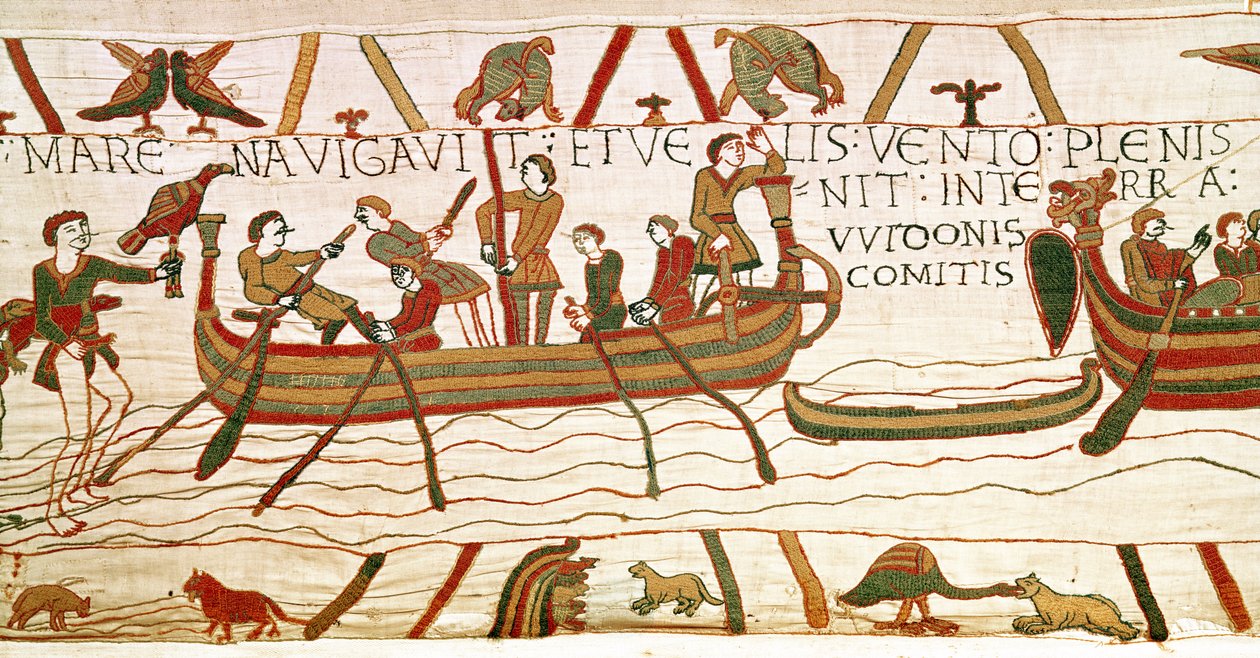 : MARE NAVIGAVIT : ET VELIS : VENTO : PLENIS
= NIT : IN TERRA :
VVIDONIS
COMITIS